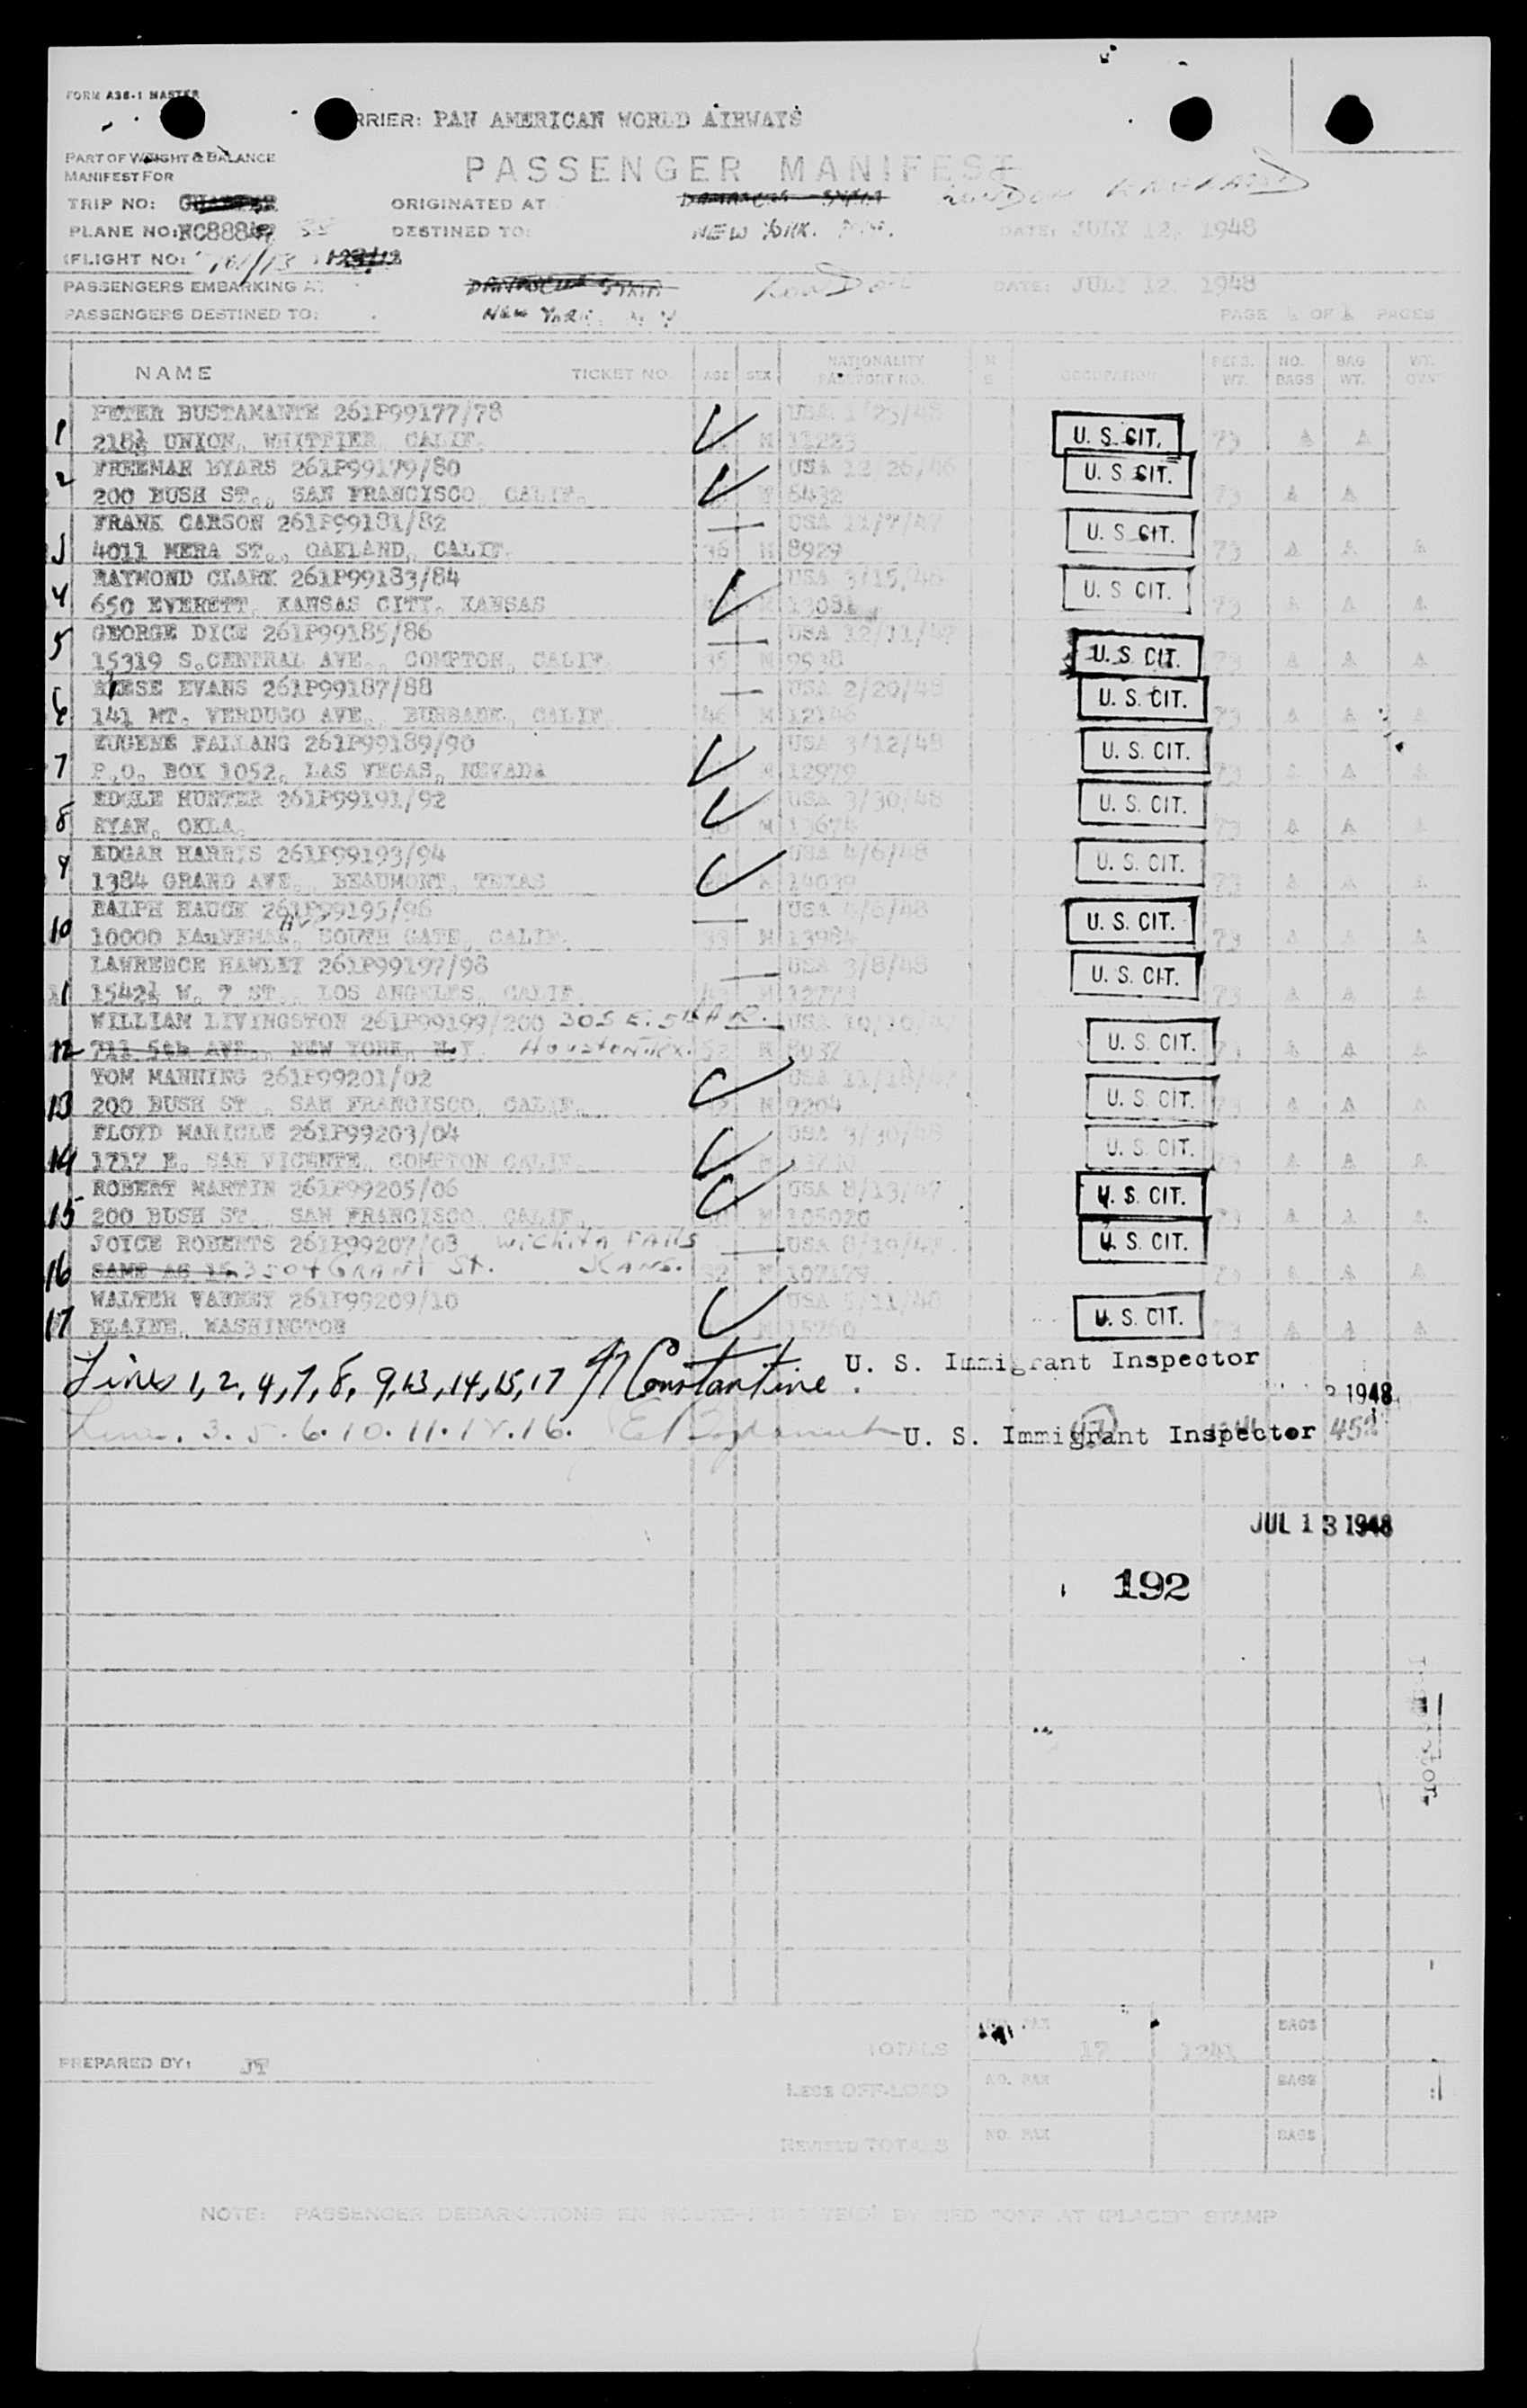 FORM A38-1 MASTER
RRIER: PAN AMERICAN WORLD AIRWAYS
PART OF WEIGHT & BALANCE
MANIFEST FOR
PASSENGER MANIFEST
TRIP NO:
ORIGINATED AT
DAMASCUS SYRIA LONDON ENGLAND
PLANE NO:
DESTINED TO: NEW YORK. DATE: JULY 12, 1948
FLIGHT NO:
PASSENGERS EMBARKING AT DAMASCUS SYRIA LONDON DATE: JULY 12, 1948
PASSENGERS DESTINED TO: NEW YORK, N Y PAGE OF PAGES
NAME TICKET NO. AGE SEX NATIONALITY PASSPORT NO. OCCUPATION PERS. WT. NO. BAGS BAG WT. WT.
PETER BUSTAMANTE 261P99177/78 USA 1/23/48
1 218½ UNION, WHITTIER, CALIF. M 11223 U. S. CIT. 73 A A
FREEMAN BYARS 261P99179/80 USA
2 200 BUSH ST., SAN FRANCISCO, CALIF. M 6432 U. S. CIT. 73 A A
FRANK CARSON 261P99181/82 USA 11/7/47
3 4011 MERA ST., OAKLAND, CALIF. 36 M 8929 U. S. CIT. 73 A A A
RAYMOND CLARK 261P99183/84 USA 3/15/48
4 650 EVERETT, KANSAS CITY, KANSAS M 13081 U. S. CIT. 73 A A A
GEORGE DICE 261P99185/86 USA 12/11/47
5 15319 S.CENTRAL AVE., COMPTON, CALIF. 35 M 9938 U. S. CIT. 73 A A A
REESE EVANS 261P99187/88 USA 2/20/48
6 141 MT. VERDUGO AVE., BURBANK, CALIF. 46 M 12146 U. S. CIT. 73 A A A
EUGENE FALLANG 261P99189/90 USA 3/12/48
7 P.O. BOX 1052, LAS VEGAS, NEVADA M 12979 U. S. CIT. 73 A A A
HUNTER 261P99191/92 USA 3/30/48
8 RYAN, OKLA. M 13674 U. S. CIT. 73 A A A
EDGAR HARRIS 261P99193/94 USA 4/6/48
9 1384 GRAND AVE., BEAUMONT, TEXAS M 14039 U. S. CIT. 73 A A A
RALPH HAUCK 261P99195/96 USA 4/6/48
10 10000 SOUTH GATE, CALIF. 33 M 13984 U. S. CIT. 73 A A A
LAWRENCE HAWLEY 261P99197/98 USA 3/8/48
11 1542½ W. 7 ST., LOS ANGELES, CALIF. M U. S. CIT. 73 A A A
WILLIAM LIVINGSTON 261P99199/200 305 E. 5th USA
12 711 5th AVE., NEW YORK, N.Y. Houston Tex. 52 M 8032 U. S. CIT. A A A
TOM MANNING 261P99201/02 USA 11/18/47
13 200 BUSH ST., SAN FRANCISCO, CALIF. M 9204 U. S. CIT. 73 A A A
FLOYD MARICLE 261P99203/04 USA 3/30/48
14 1717 E. SAN VICENTE, COMPTON CALIF. M U. S. CIT. A A A
ROBERT MARTIN 261P99205/06 USA 8/13/47
15 200 BUSH ST., SAN FRANCISCO, CALIF. M 105020 U. S. CIT. 73 A A A
JOYCE ROBERTS 261P99207/08 WICHITA FALLS USA 8/19/47
16 SAME AS 15 3504 GRANT St. KANS. 32 M 107179 U. S. CIT. 73 A A A
WALTER VARNEY 261P99209/10 USA 5/11/48
17 BLAINE, WASHINGTON M 15260 U. S. CIT. 73 A A A
Lines 1, 2, 4, 7, 8, 9, 13, 14, 15, 17 Constantine U. S. Immigrant Inspector
1948
Lines. 3. 5. 6. 10. 11. 12. 16. U. S. Immigrant Inspector 452
JUL 13 1948
192
TOTALS 17 1241 BAGS
PREPARED BY: JT
LESS OFF-LOAD NO. PAX BAGS
REVISED TOTALS NO. PAX BAGS
NOTE: PASSENGER DEBARKATIONS EN ROUTE BY RED "OFF AT (PLACE)" STAMP